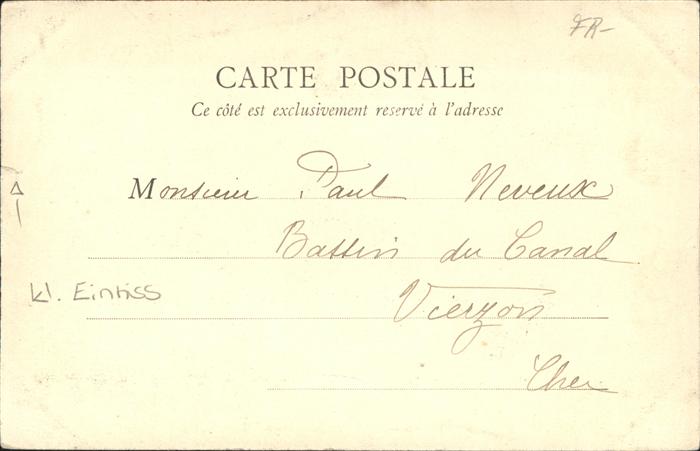 FR-
CARTE POSTALE
Ce côté est exclusivement réservé à l'adresse
Monsieur Paul Neveux
Bassin du Canal
kl. Einriss
Vierzon
Cher